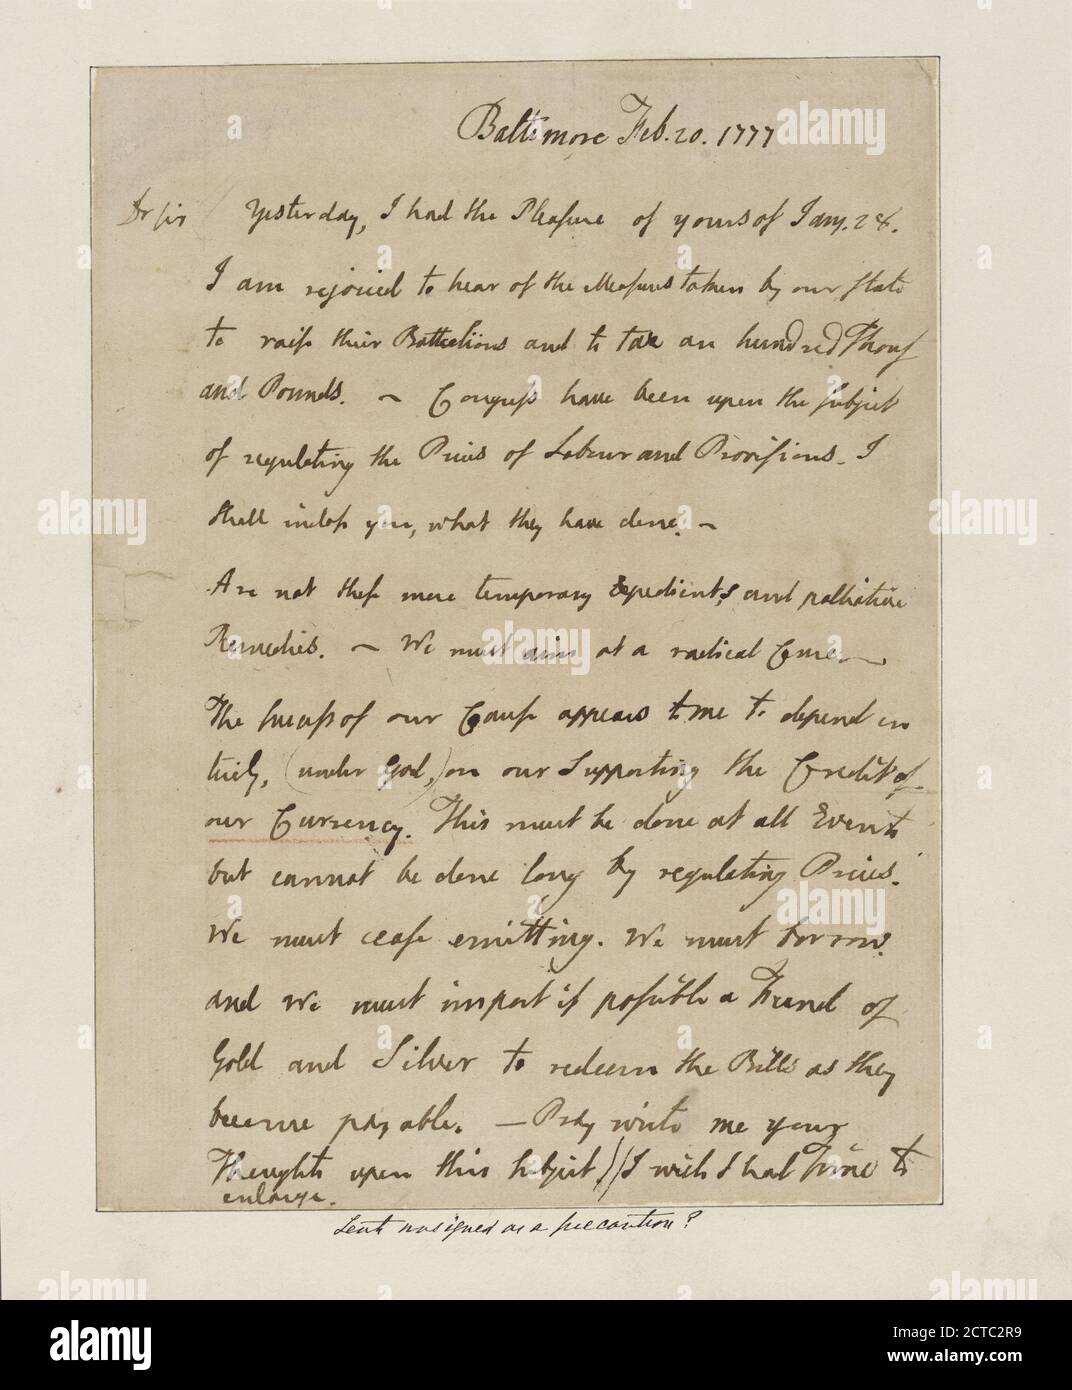 Baltimore Feb. 20. 1777
Dr sir Yesterday, I had the Pleasure of yours of Jany. 28.
I am rejoiced to hear of the Measures taken by our state
to raise their Battalions and to tax an hundred Thous
and Pounds. ~ Congress have been upon the subject
of regulating the Prices of Labour and Provisions. I
shall inclose you, what they have done. ~
Are not these mere temporary Expedients, and palliative
Remedies. ~ We must aim at a radical Cure. ~
The success of our Cause appears to me to depend en
tirely, (under God,) on our supporting the Credit of
our Currency. This must be done at all Events
but cannot be done long by regulating Prices.
We must cease emitting. We must borrow.
and we must import if possible a Fund of
Gold and Silver to redeem the Bills as they
become payable. — Pray write me your
Thoughts upon this subject // I wish I had Time to
enlarge.
Sent unsigned as a precaution?
alamy
Image ID: 2CTC2R9
www.alamy.com